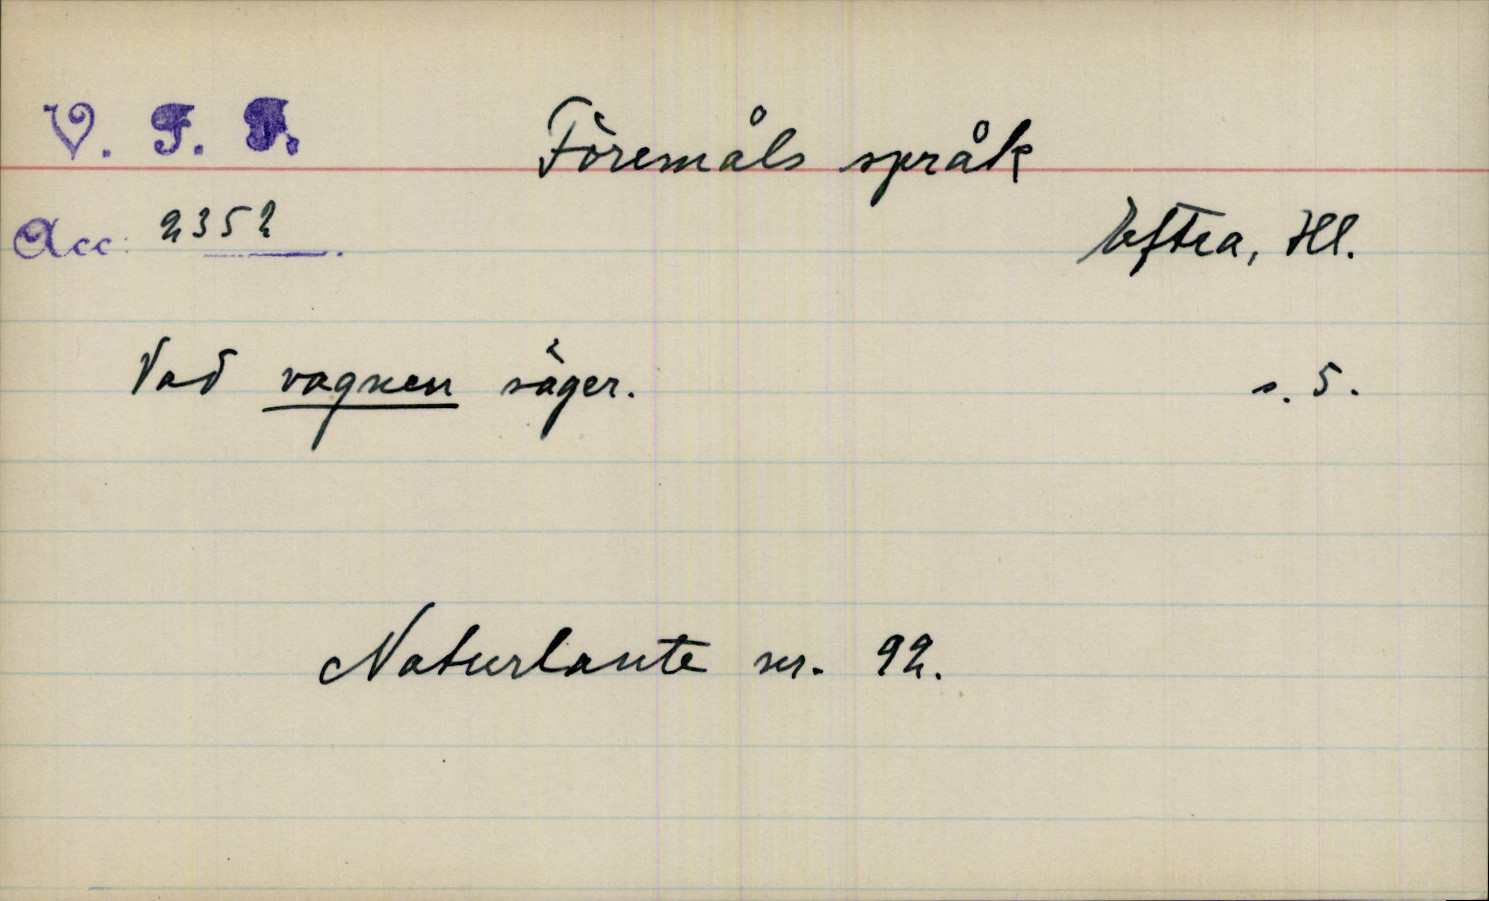 V. F. F. Föremåls språk
Acc: 2352. Eftra, Hl.
Vad vagnen säger. s. 5.
Naturlaute nr. 92.